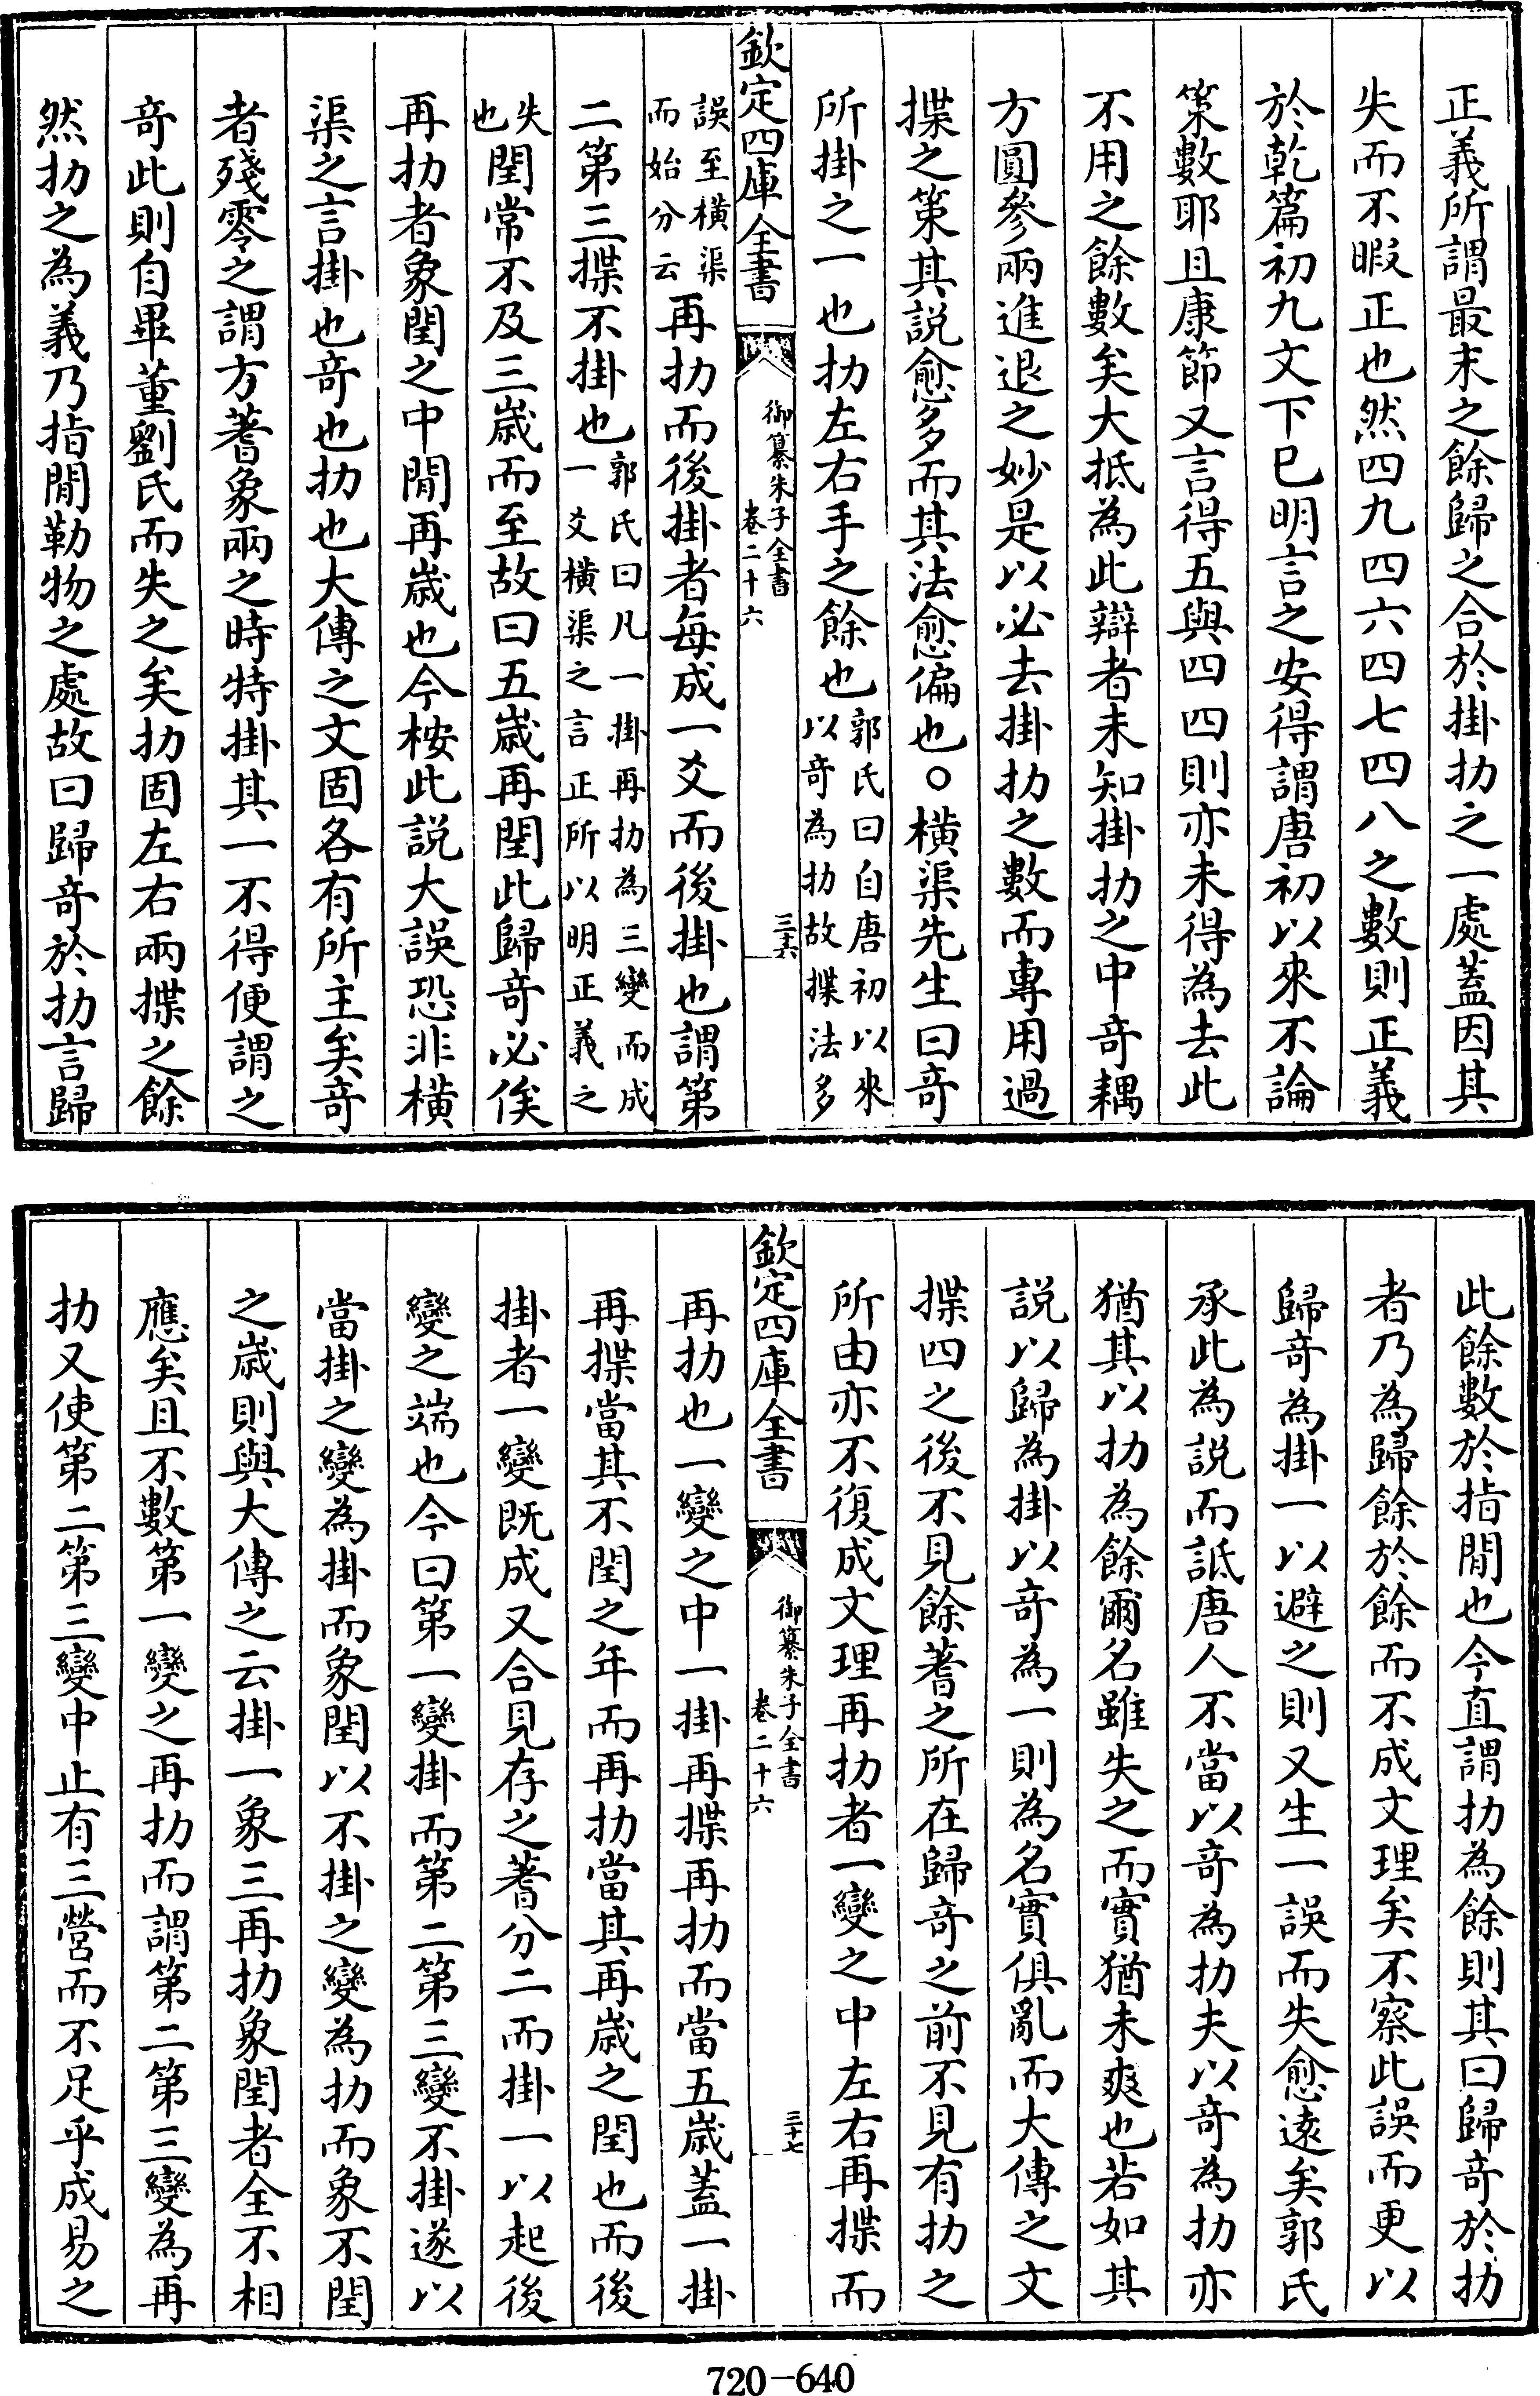 正義所謂最末之餘歸之合於掛扐之一處蓋因其
失而不暇正也然四九四六四七四八之數則正義
於乾篇初九文下已明言之安得謂唐初以來不論
策數耶且康節又言得五與四四則亦未得為去此
不用之餘數矣大抵為此辯者未知掛扐之中奇耦
方圓參兩進退之妙是以必去掛扐之數而專用過
揲之策其説愈多而其法愈偏也○橫渠先生曰奇
所掛之一也扐左右手之餘也郭氏曰自唐初以來
以奇為扐故揲法多
欽定四庫全書
御纂朱子全書
卷二十六
三十六
誤至橫渠
而始分云
再扐而後掛者每成一爻而後掛也謂第
二第三揲不掛也郭氏曰凡一掛再扐為三變而成
一爻橫渠之言正所以明正義之
失
也
閏常不及三歲而至故曰五歲再閏此歸奇必俟
再扐者象閏之中閒再歲也今桉此説大誤恐非橫
渠之言掛也奇也扐也大傳之文固各有所主矣奇
者殘零之謂方蓍象兩之時特掛其一不得便謂之
奇此則自畢董劉氏而失之矣扐固左右兩揲之餘
然扐之為義乃指閒勒物之處故曰歸奇於扐言歸
此餘數於指閒也今直謂扐為餘則其曰歸奇於扐
者乃為歸餘於餘而不成文理矣不察此誤而更以
歸奇為掛一以避之則又生一誤而失愈遠矣郭氏
承此為説而詆唐人不當以奇為扐夫以奇為扐亦
猶其以扐為餘爾名雖失之而實猶未爽也若如其
説以歸為掛以奇為一則為名實俱亂而大傳之文
揲四之後不見餘蓍之所在歸奇之前不見有扐之
所由亦不復成文理再扐者一變之中左右再揲而
欽定四庫全書
御纂朱子全書
卷二十六
三十七
再扐也一變之中一掛再揲再扐而當五歲蓋一掛
再揲當其不閏之年而再扐當其再歲之閏也而後
掛者一變既成又合見存之蓍分二而掛一以起後
變之端也今曰第一變掛而第二第三變不掛遂以
當掛之變為掛而象閏以不掛之變為扐而象不閏
之歲則與大傳之云掛一象三再扐象閏者全不相
應矣且不數第一變之再扐而謂第二第三變為再
扐又使第二第三變中止有三營而不足乎成易之
720-640